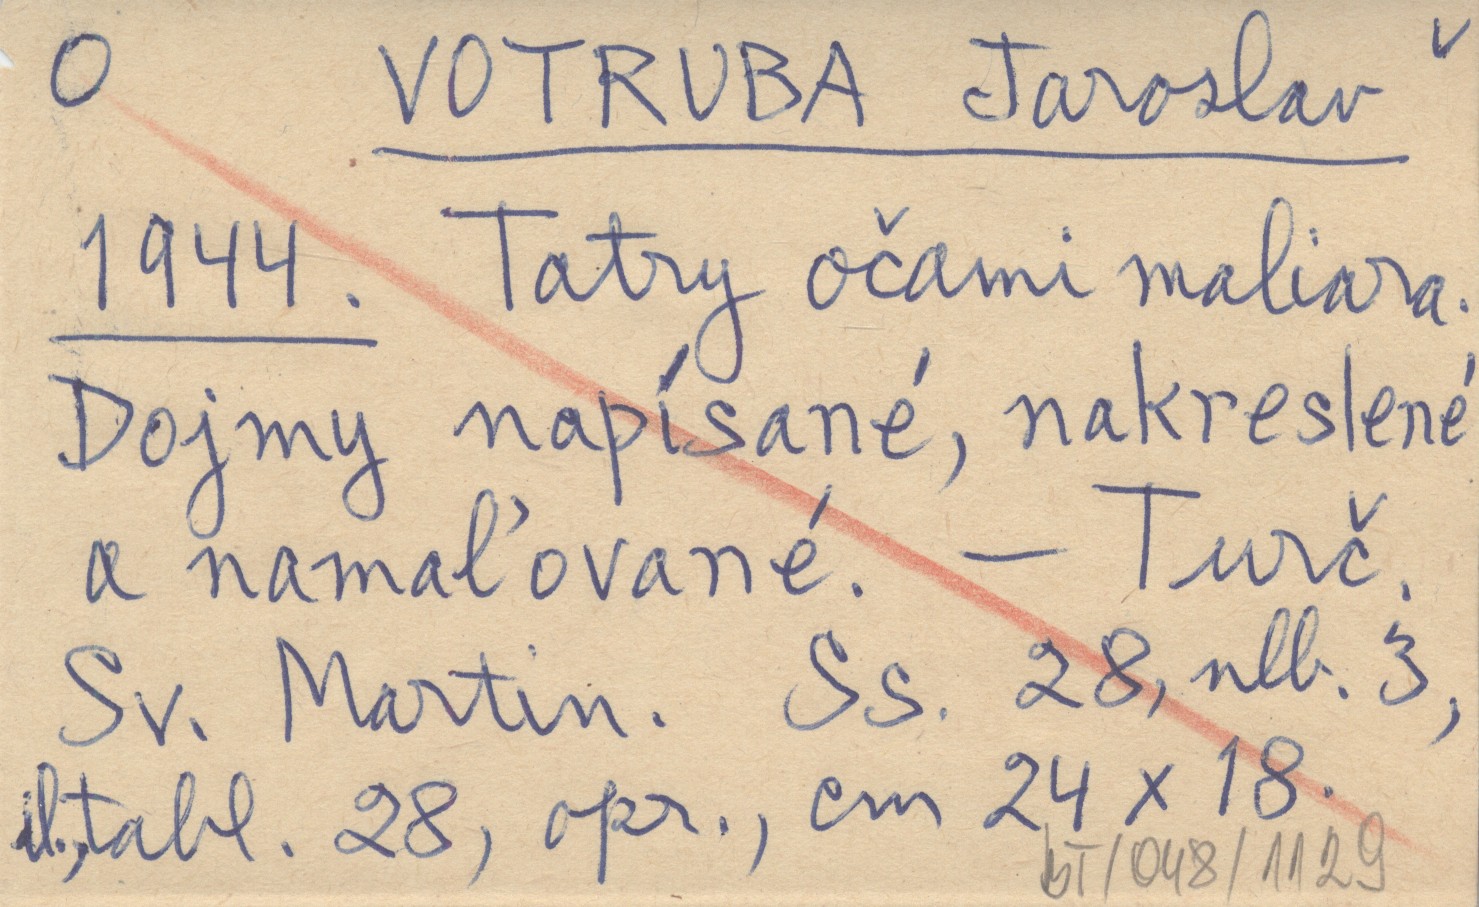 O VOTRUBA Jaroslav v
1944. Tatry očami maliara.
Dojmy napísané, nakreslené
a namaľované. — Turč.
Sv. Martin. Ss. 28, nlb. 3,
il., tabl. 28, opr., cm 24 x 18.
BT/048/1129